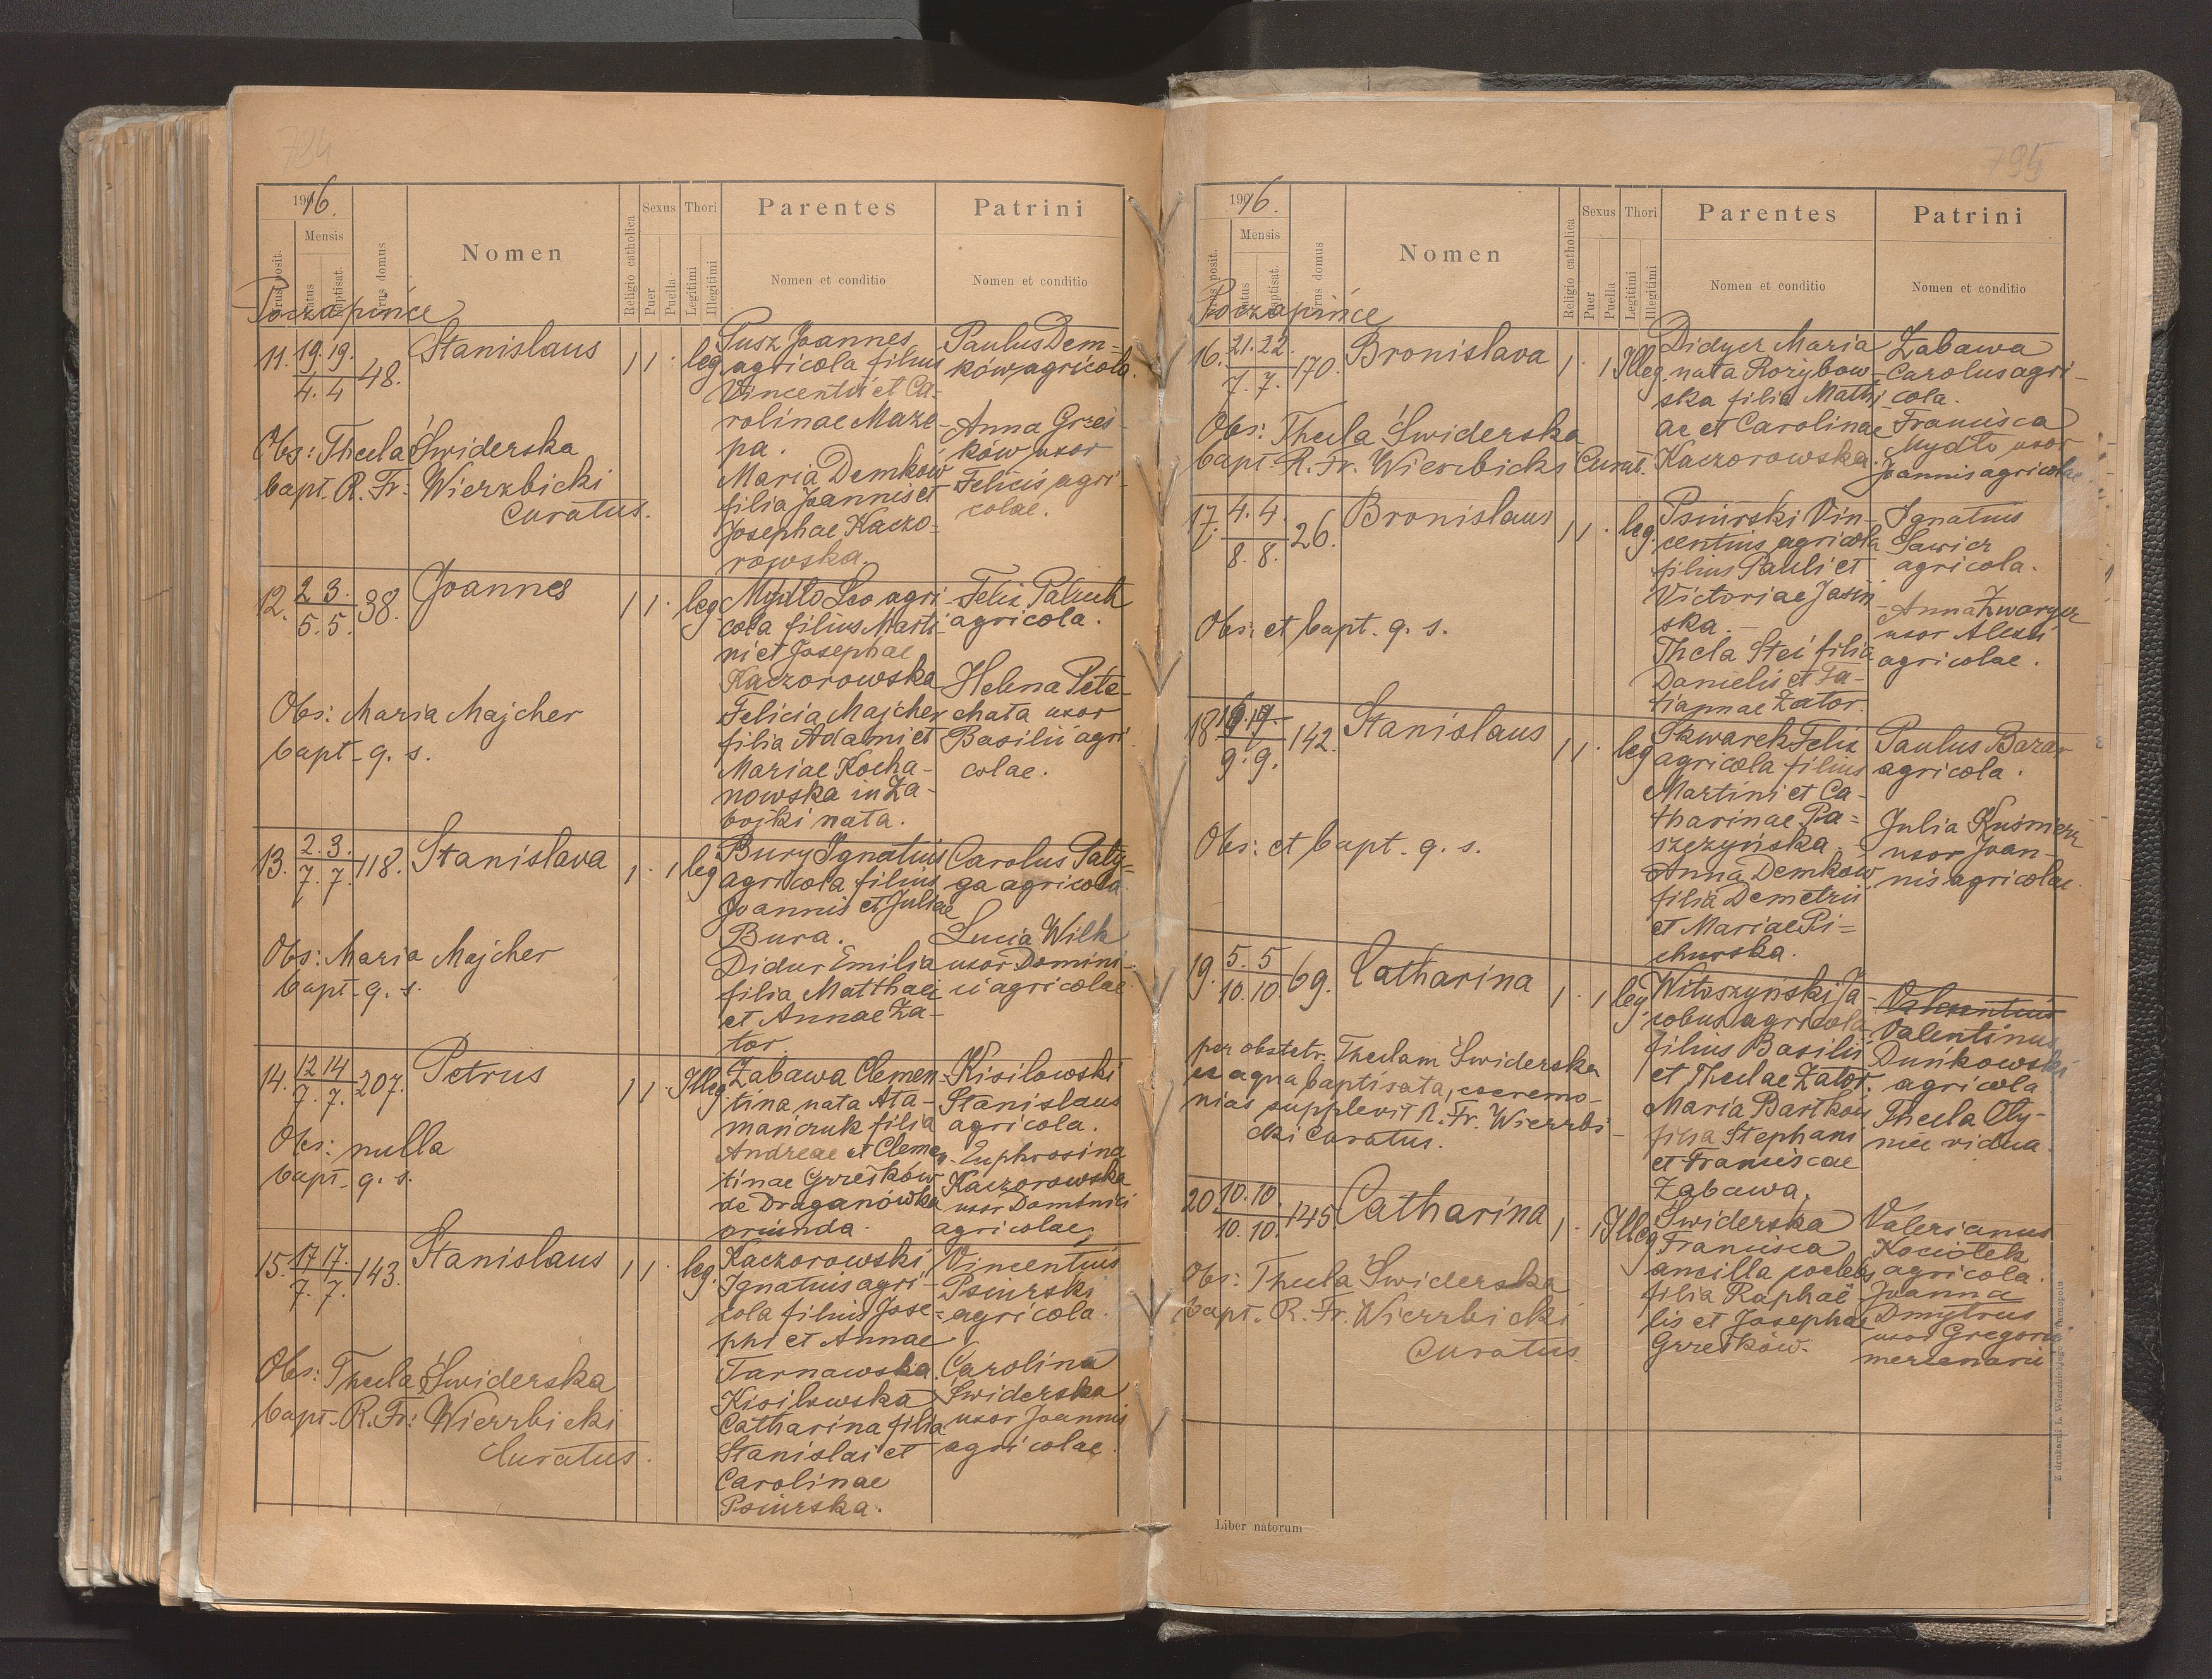 794
1916.
Mensis
Nrus posit.
natus
baptisat.
Nrus domus
Nomen
Religio catholica
Sexus
Puer
Puella
Thori
Legitimi
Illegitimi
Parentes
Nomen et conditio
Patrini
Nomen et conditio
Poczapińce
11. 19. 19. 48. Stanislaus 1 1 . leg
4. 4
Pusz Joannes
agricola filius
Vincentii et Ca-
rolinae Maze-
pa.
Maria Demków
filia Joannis et
Josephae Kaczo-
rowska.
Paulus Dem-
ków agricola.
Anna Grześ-
ków uxor
Felicis agri-
colae.
Obs: Thecla Świderska
bapt. R. Fr: Wierzbicki
Curatus.
12. 2 3. 38. Joannes 1 1 . leg.
5. 5.
Mydło Leo agri-
cola filius Marti-
ni et Josephae
Kaczorowska
Felicia Majcher
filia Adami et
Mariae Kocha-
nowska in Za-
bojki nata.
Felix Paluch
agricola.
Helena Pete-
chata uxor
Basilii agri-
colae.
Obs: Maria Majcher
bapt. q. s.
13. 2. 3. 118. Stanislava 1 . 1 leg
7. 7.
Bury Ignatius
agricola filius
Joannis et Juliae
Bura.
Didur Emilia
filia Matthaei
et Annae Za-
tor
Carolus Paly-
ga agricola.
Lucia Wilk
uxor Domini-
ci agricolae
Obs: Maria Majcher
bapt. q. s.
14. 12 14 207. Petrus 1 1 . Illeg
7. 7.
Zabawa Clemen-
tina nata Ata-
mańczuk filia
Andreae et Clemen-
tinae Grześków
de Draganówka
oriunda.
Kisilowski
Stanislaus
agricola.
Euphrosina
Kaczorowska
uxor Dominici
agricolae,
Obs: nulla
bapt. q. s.
15. 17 17. 143. Stanislaus 1 1 . leg.
7. 7.
Kaczorowski
Ignatius agri-
cola filius Jose-
phi et Annae
Tarnawska.
Kisilowska
Catharina filia
Stanislai et
Carolinae
Psiurska.
Vincentius
Psiurski
agricola.
Carolina
Świderska
uxor Joannis
agricolae.
Obs: Thecla Świderska
bapt. R. Fr: Wierzbicki
Curatus.
795
1916.
Mensis
Nrus posit.
natus
baptisat.
Nrus domus
Nomen
Religio catholica
Sexus
Puer
Puella
Thori
Legitimi
Illegitimi
Parentes
Nomen et conditio
Patrini
Nomen et conditio
Poczapińce
16. 21. 22. 170. Bronislava 1 . 1 Illeg.
7. 7.
Didyer Maria
nata Rozybow-
ska filia Mathi-
ae et Carolinae
Kaczorowska.
Zabawa
Carolus agri-
cola.
Francisca
Mydło uxor
Joannis agricolae
Obs: Thecla Świderska
bapt. R. Fr. Wierzbicki Curat.
17. 4. 4. 26. Bronislaus 1 1 . leg.
8. 8.
Psiurski Vin-
centius agricola
filius Pauli et
Victoriae Jasiń-
ska.-
Thecla Stei filia
Danielis et Ta-
tiannae Zator.
Ignatius
Sawicz
agricola.
Anna Zwarycz
uxor Alexii
agricolae.
Obs: et bapt. q. s.
18. 142. Stanislaus 1 1 . leg
9. 9.
Skwarek Felix
agricola filius
Martini et Ca-
tharinae Pa=
szczyńska.
Anna Demków
filia Demetrii
et Mariae Pi=
churska.
Paulus Bazar
agricola.
Julia Kuśnierz
uxor Joan-
nis agricolae.
Obs: et bapt. q. s.
19. 5. 5 69. Catharina 1 . 1 leg.
10. 10
Witoszyński Ja-
cobus agricola
filius Basilii
et Theclae Zator.
Maria Bartków
filia Stephani
et Franciscae
Zabawa,
Valentinus
Valentinus
Duńkowski
agricola
Thecla Oly-
nec vidua.
per obstetr. Theclam Świderska
ex aqua baptisata, ceremo-
nias supplevit R. Fr. Wierzbi-
cki Curatus.
20. 10. 10. 145 Catharina 1 . 1 Illeg
10. 10.
Świderska
Francisca
ancilla coelebs
filia Raphae-
lis et Josephae
Grześków.
Valerianus
Kociołek
agricola.
Joanna
Dmytrus
uxor Gregorii
mercenarii
Obs: Thecla Świderska
bapt. R. Fr. Wierzbicki
Curatus
Liber natorum
Z drukarni L. Wierzbickiego w Tarnopolu